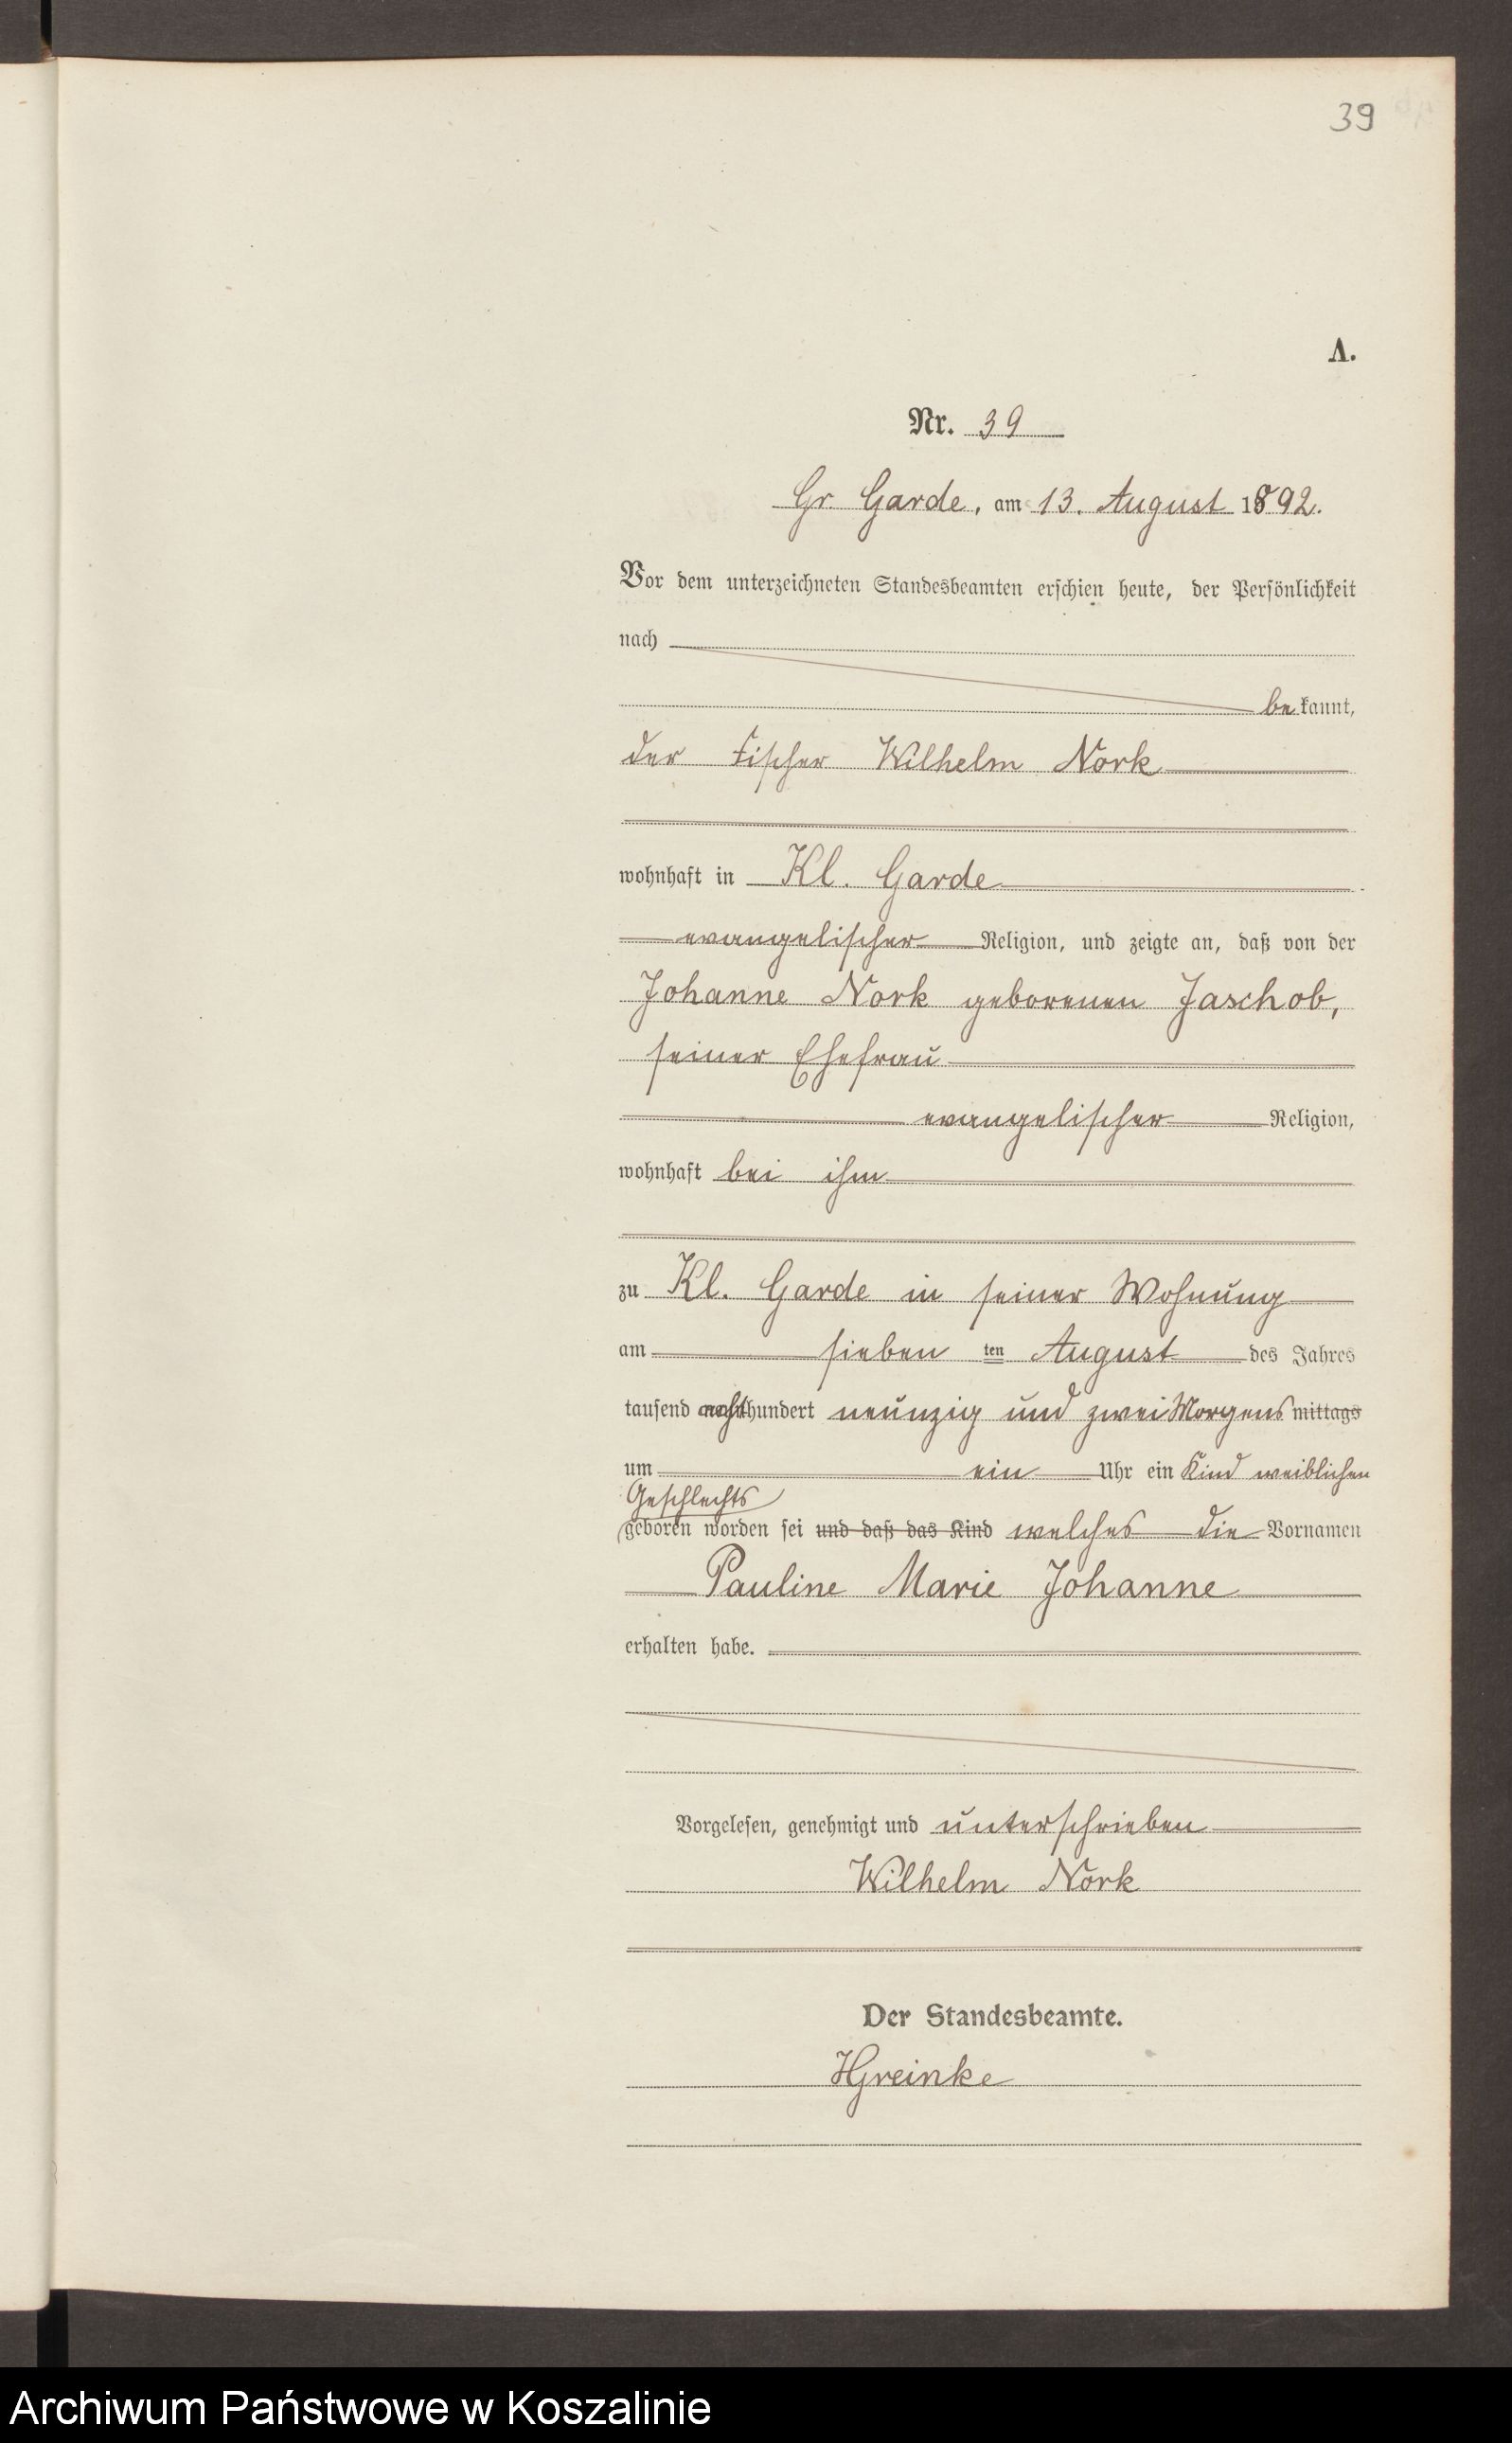 39
A.
Nr. 39
Gr. Garde, am 13. August 1892.
Vor dem unterzeichneten Standesbeamten erschien heute, der Persönlichkeit
nach
bekannt,
der Fischer Wilhelm Nork
wohnhaft in Kl. Garde
evangelischer Religion, und zeigte an, daß von der
Johanne Nork geborenen Jaschob,
seiner Ehefrau
evangelischer Religion,
wohnhaft bei ihm
zu Kl. Garde in seiner Wohnung
am sieben ten August des Jahres
tausend achthundert neunzig und zwei Morgens mittags
um ein Uhr ein Kind weiblichen
Geschlechts
geboren worden sei und daß das Kind welches die Vornamen
Pauline Marie Johanne
erhalten habe.
Vorgelesen, genehmigt und unterschrieben
Wilhelm Nork
Der Standesbeamte.
HGreinke
Archiwum Państwowe w Koszalinie